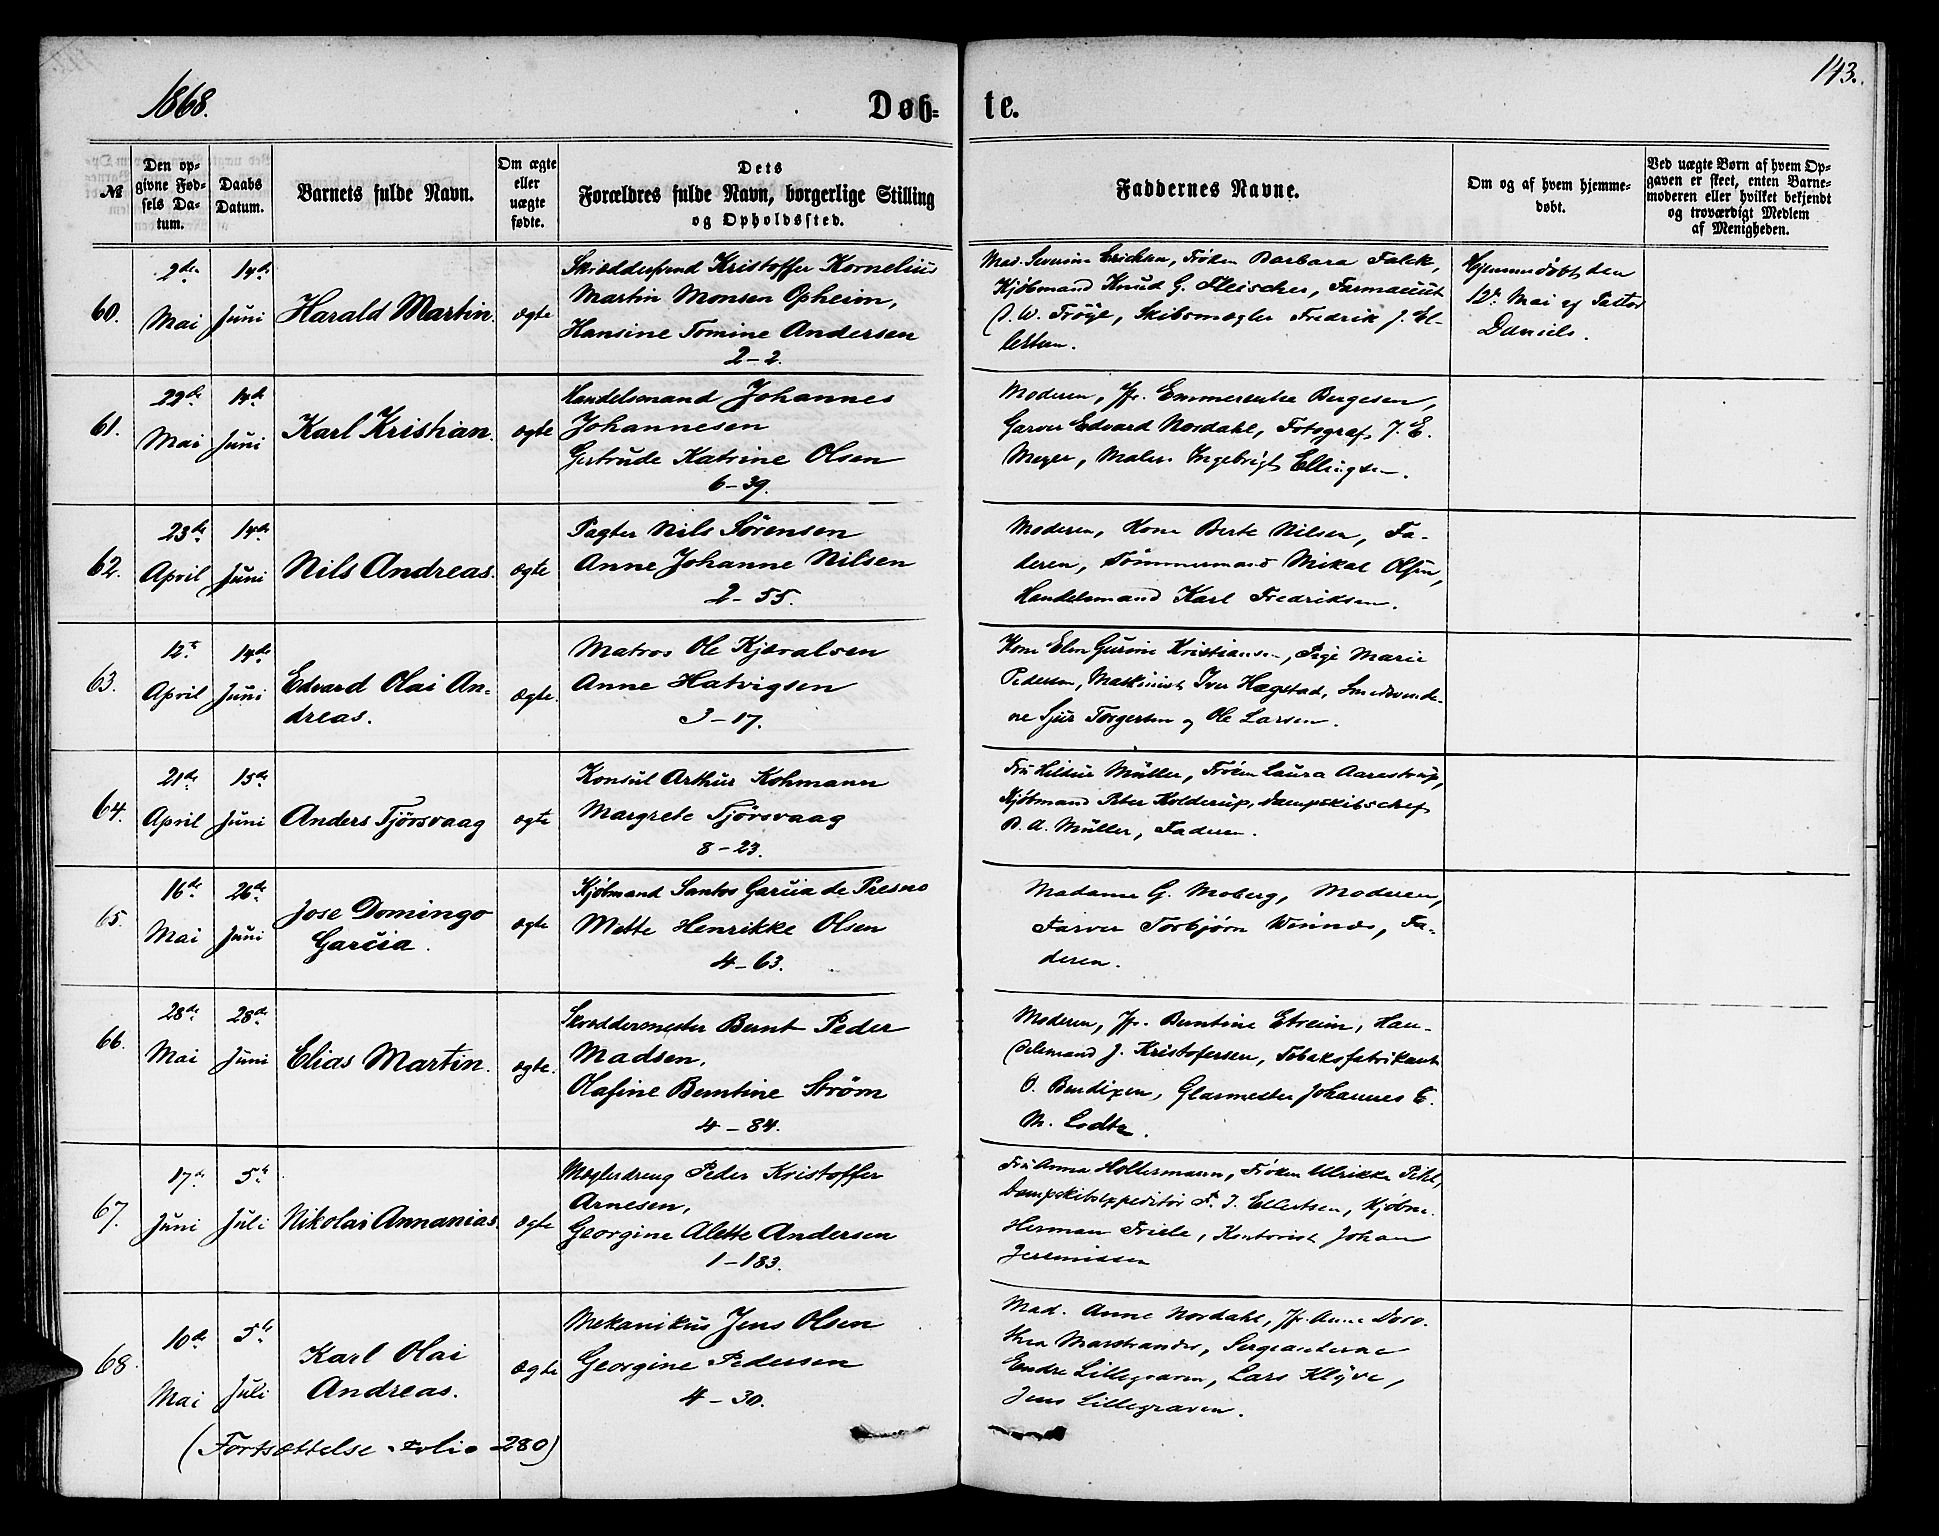 1868.
Døb-
te.
143.
№
Den op-
givne Fød-
sels Da-
tum.
Daabs
Datum.
Barnets fulde Navn.
Om ægte
eller
uægte
fødte.
Dets
Forældres fulde Navn, borgerlige Stilling
og Opholdssted.
Faddernes Navne.
Om og af hvem hjemme-
døbt.
Ved uægte Børn af hvem Op-
gaven er skeet, enten Barne-
moderen eller hvilket bekjendt
og troværdigt Medlem
af Menigheden.
60.
2den
Mai
14de
Juni
Harald Martin.
ægte
Skræddersvend Kristoffer Kornelius
Martin Monsen Opheim,
Hansine Tomine Andersen
2-2.
Mad. Severine Erichsen, Frøken Barbara Falck,
Kjøbmand Knud G. Fleischer, Farmaceut
W. Frøyl, Skibsmægler Fredrik J. El-
lertsen.
Hjemmedøbt den
12te Mai af Pastor
Daniels.
61.
22de
Mai
14de
Juni
Karl Kristian.
ægte
Handelsmand Johannes
Johannesen
Gertrude Katrine Olsen
6-39.
Moderen, Jfr. Emmerentse Bergesen,
Garver Edvard Nordahl, Fotograf J. E.
Meyer, Maler Ingebrigt Ellingsen.
62.
23de
April
14de
Juni
Nils Andreas.
ægte
Pagter Nils Sørensen
Anne Johanne Nilsen
2-55.
Moderen, Kone Berte Nilsen, Fa-
deren, Tømmermand Mikal Olsen,
Handelsmand Karl Fredriksen.
63.
12te
April
14de
Juni
Edvard Olai An-
dreas.
ægte.
Matros Ole Kjævalsen
Anne Hatvigsen
3-17.
Kone Elen Gurine Kristiansen, Pige Marie
Pedersen, Maskinist Iver Hægstad, Smedsvende-
ne Sjur Torgersen og Ole Larsen.
64.
21de
April
15de
Juni
Anders Tjørsvaag
ægte
Konsul Arthur Kohmann
Margrete Tjørsvaag
8-23.
Fru Müller, Frøken Laura Aarestrup,
Kjøbmand Peter Kolderup, Dampskibschef
R. A. Müller, Faderen.
65.
16de
Mai
26de
Juni
Jose Domingo
Garcia.
ægte
Kjøbmand Santos Garcia de Presno
Mette Henrikke Olsen
4-63.
Madame G. Moberg, Moderen,
Farver Torbjørn Winnes, Fa-
deren.
66.
28de
Mai
28de
Juni
Elias Martin.
ægte.
Skræddermester Bernt Peder
Madsen,
Olafine Berntine Strøm
4-84.
Moderen, Jfr. Berntine Etreim, Han-
delsmand J. Kristofersen, Tobaksfabrikant
O. Bendixen, Glarmester Johannes E.
M. Lodtz.
67.
17de
Juni
5te
Juli
Nikolai Annanias.
ægte
Møglerdreng Peder Kristoffer
Arnesen,
Georgine Alette Andersen
1-183.
Fru Anna Holtermann, Frøken Ulrikke Pihl,
Dampskibsexpeditør F. J. Ellertsen, Kjøbm.
Herman Friele, Kontorist Johan
Jeremissen
68.
10de
Mai
5te
Juli
Karl Olai
Andreas.
ægte
Mekanikus Jens Olsen
Georgine Pedersen
4-30.
Mad. Anne Nordahl, Jfr. Anne Doro-
thea Marstrander, Sergeanterne
Endre Lillegraven, Lars Klyve,
Jens Lillegraven.
(Fortsættelse folio 280)